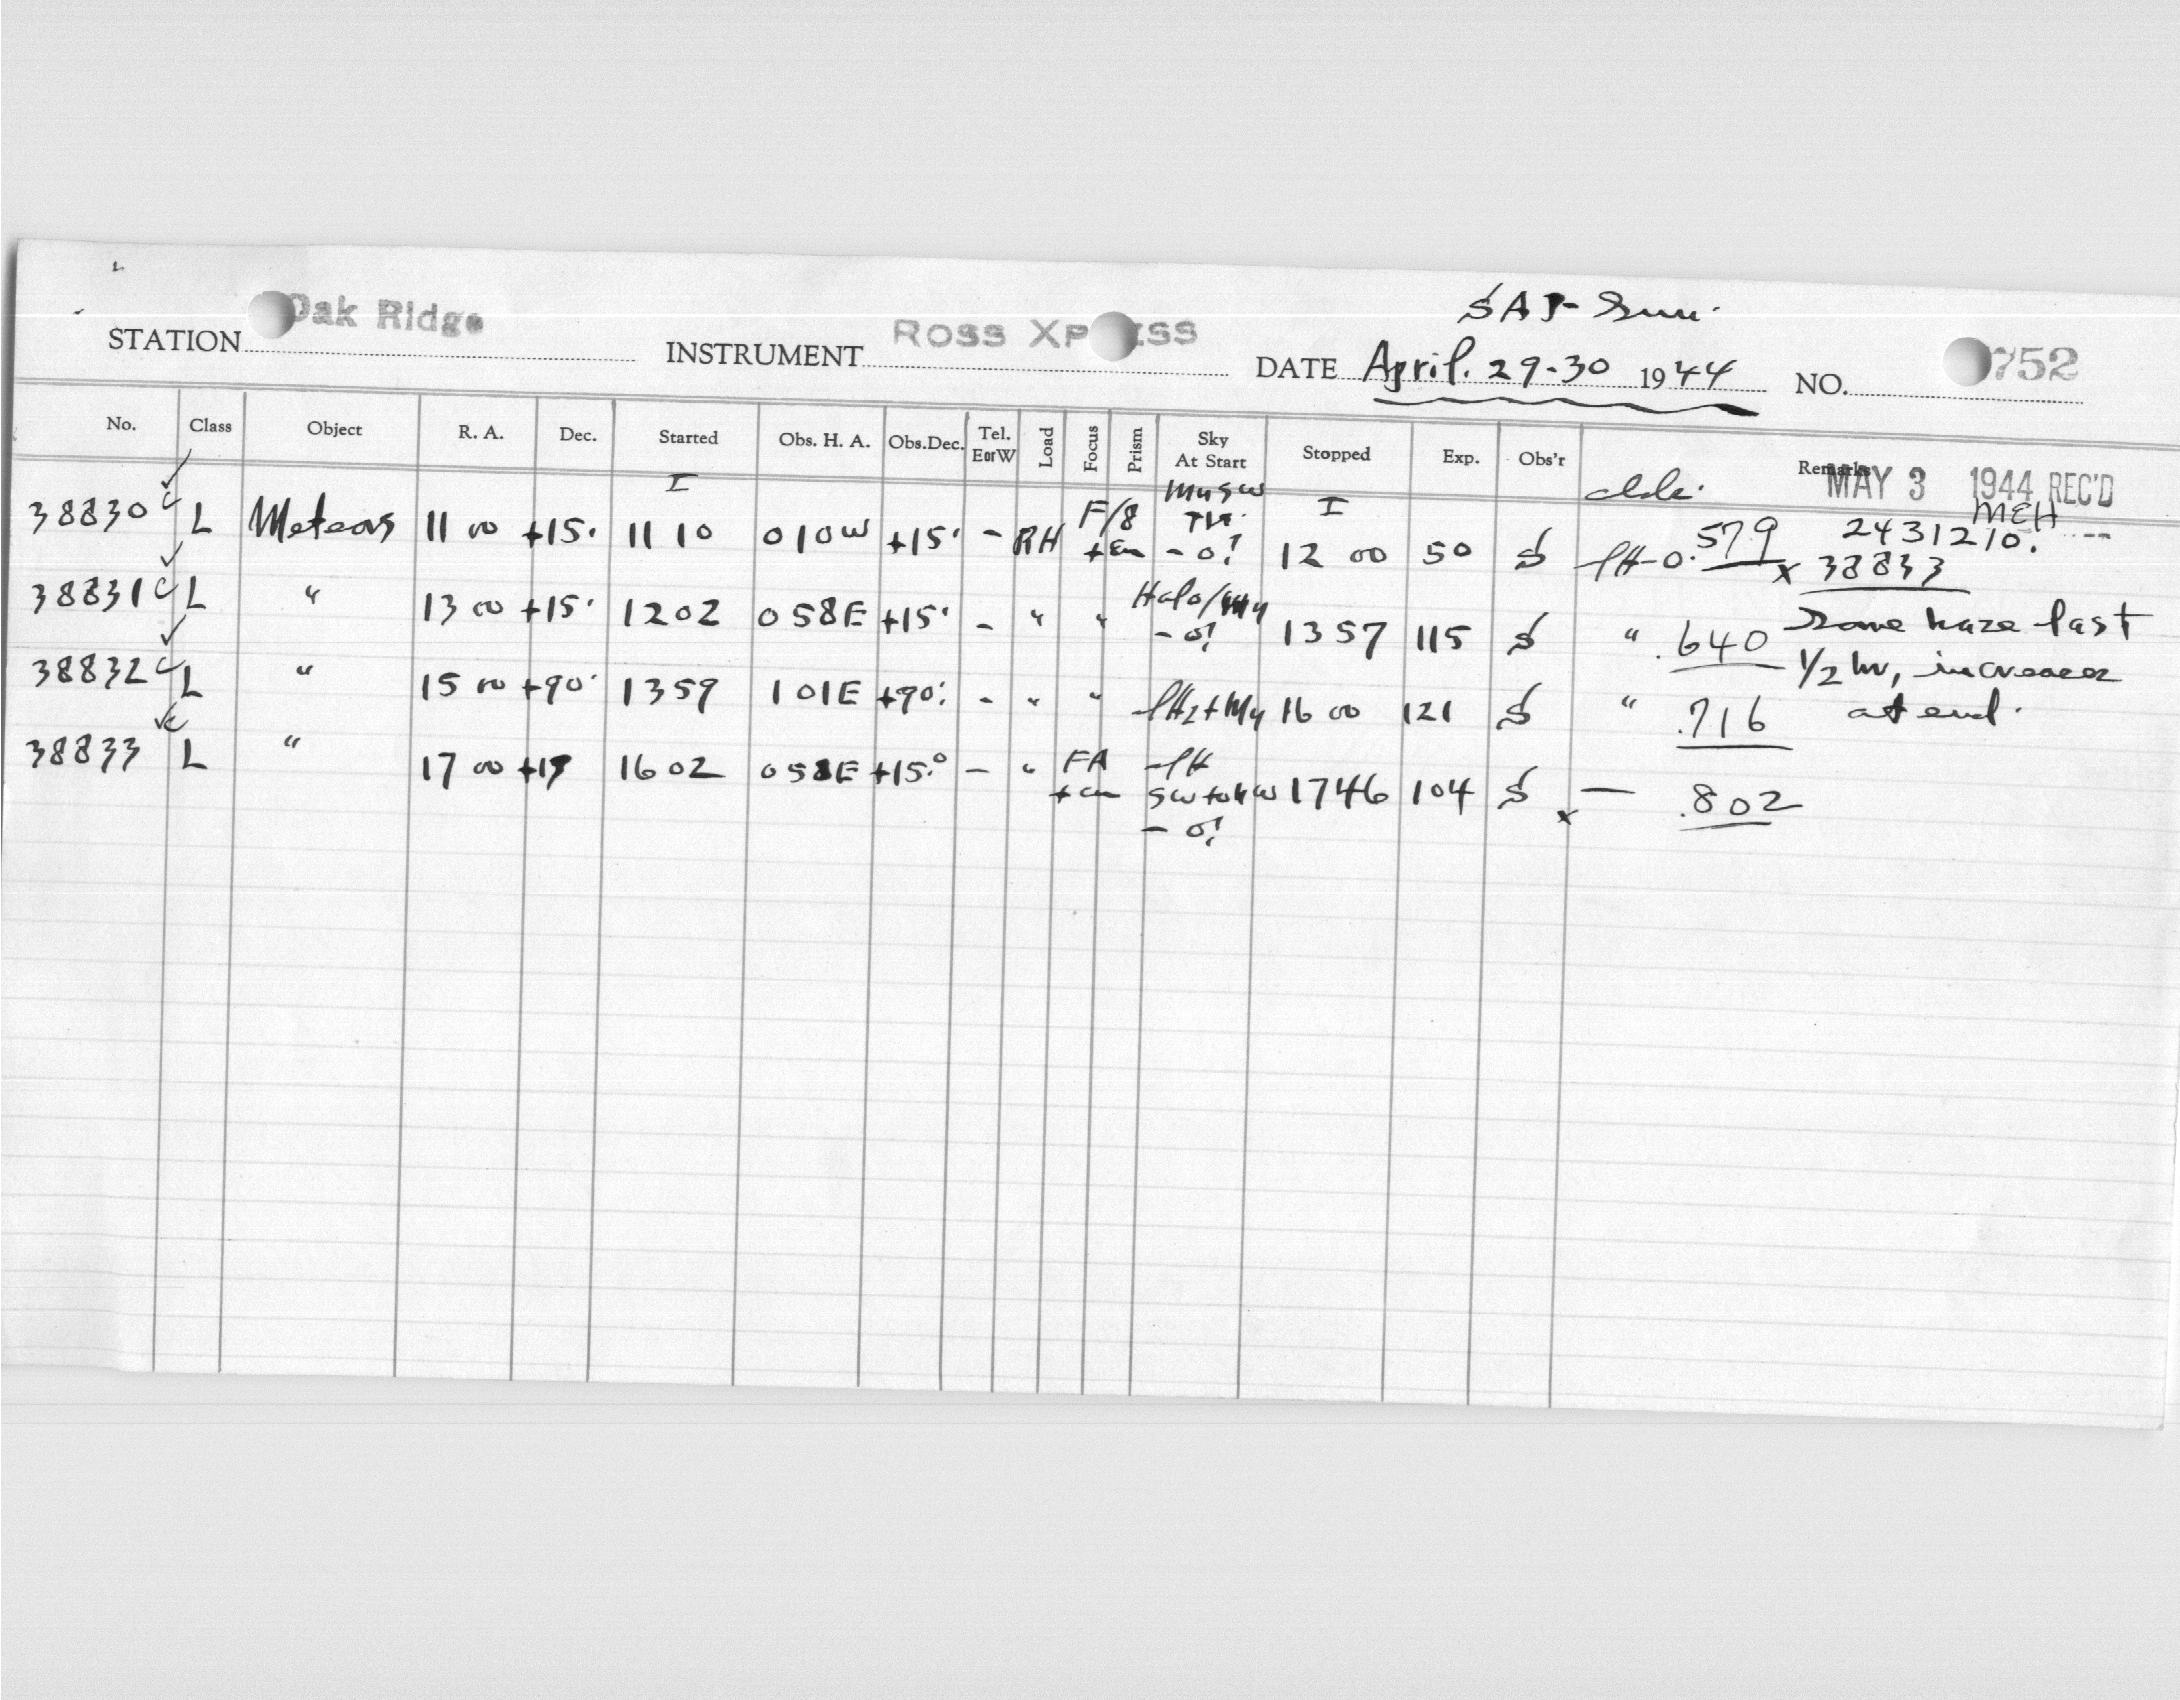 SAT-Sun.
STATION Oak Ridge INSTRUMENT ROSS XP SS DATE April. 29-30 1944 NO. 752
No. Class Object R. A. Dec. Started Obs. H. A. Obs.Dec. Tel. EorW Load Focus Prism Sky At Start Stopped Exp. Obs'r Remarks
MAY 3 1944 REC'D
MEH
38830 c L Meteors 11 00 +15° 11 10 0 10 W +15° - RH F/8 - 0! 12 00 50 S .579 2431210.
x 38833
38831 c L " 13 00 +15° 12 02 0 58 E +15° - " " Halo - 0! 13 57 115 S " .640 Some haze last
1/2 hr, increases
38832 c L " 15 00 +90° 13 59 1 01 E +90° - " " 16 00 121 S " .716 at end.
38833 c L " 17 00 +15 16 02 0 58 E +15.° - " FA SW to NW - 0! 17 46 104 S x — .802